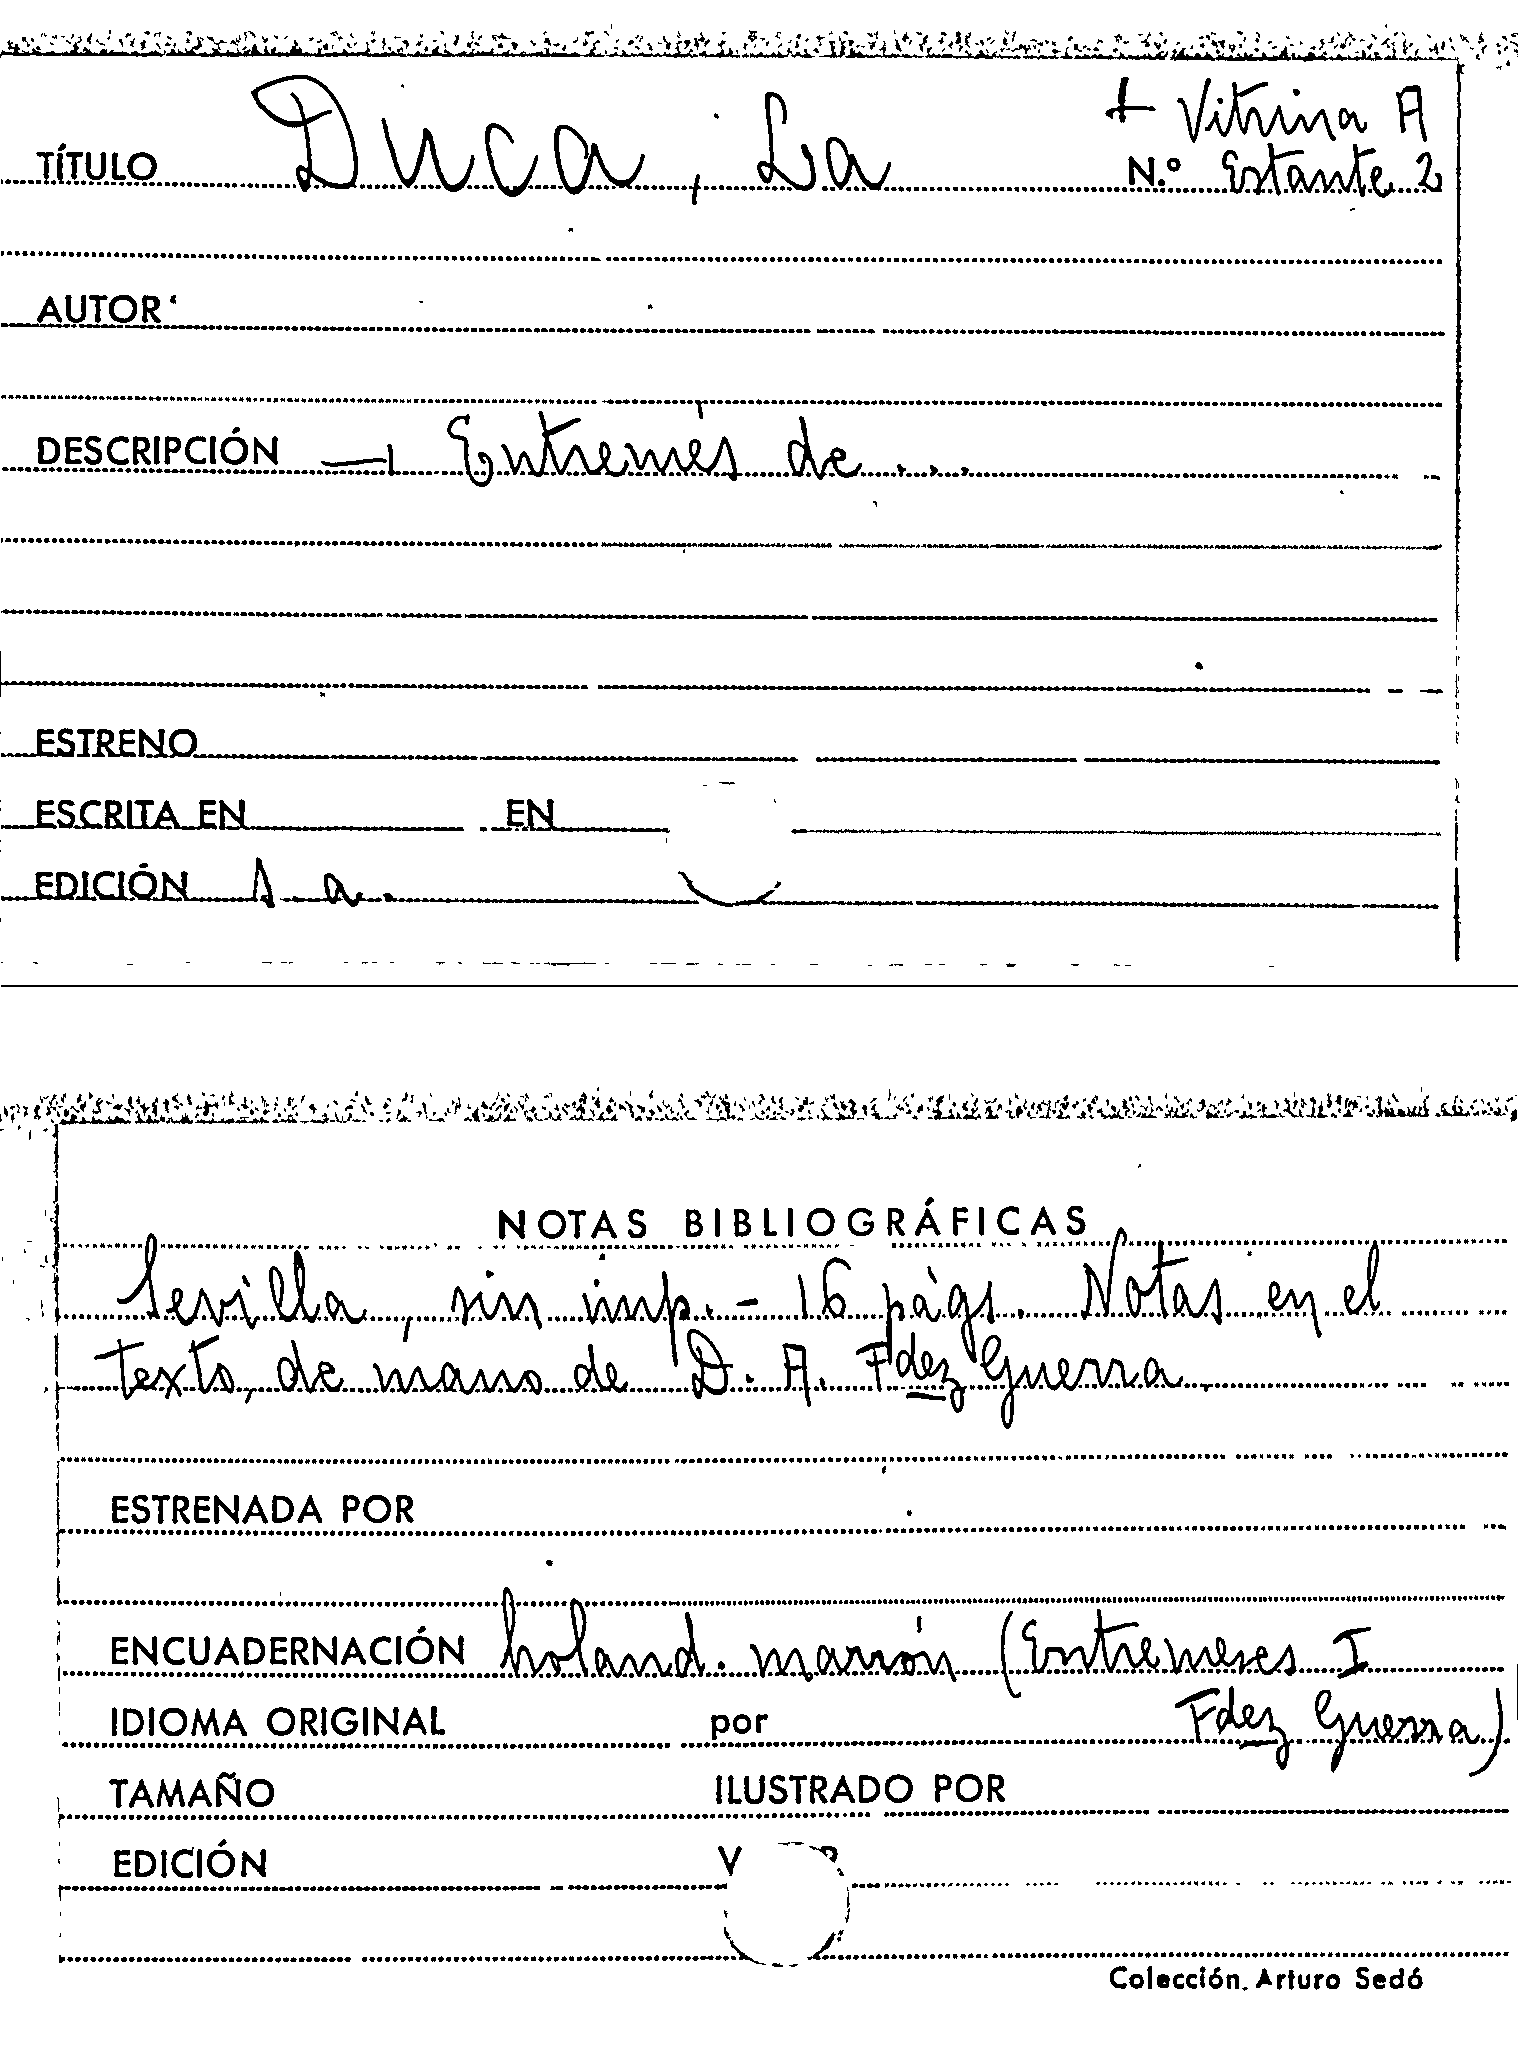 + Vitrina A
TÍTULO Duca, La N.º Estante 2
AUTOR
DESCRIPCIÓN — Entremés de ...
ESTRENO
ESCRITA EN EN
EDICIÓN s. a.
NOTAS BIBLIOGRÁFICAS
Sevilla, sin imp. - 16 págs. Notas en el
texto, de mano de D. A. Fdez Guerra
ESTRENADA POR
ENCUADERNACIÓN holand. marrón (Entremeses I
IDIOMA ORIGINAL por Fdez Guerra)
TAMAÑO ILUSTRADO POR
EDICIÓN
Colección Arturo Sedó